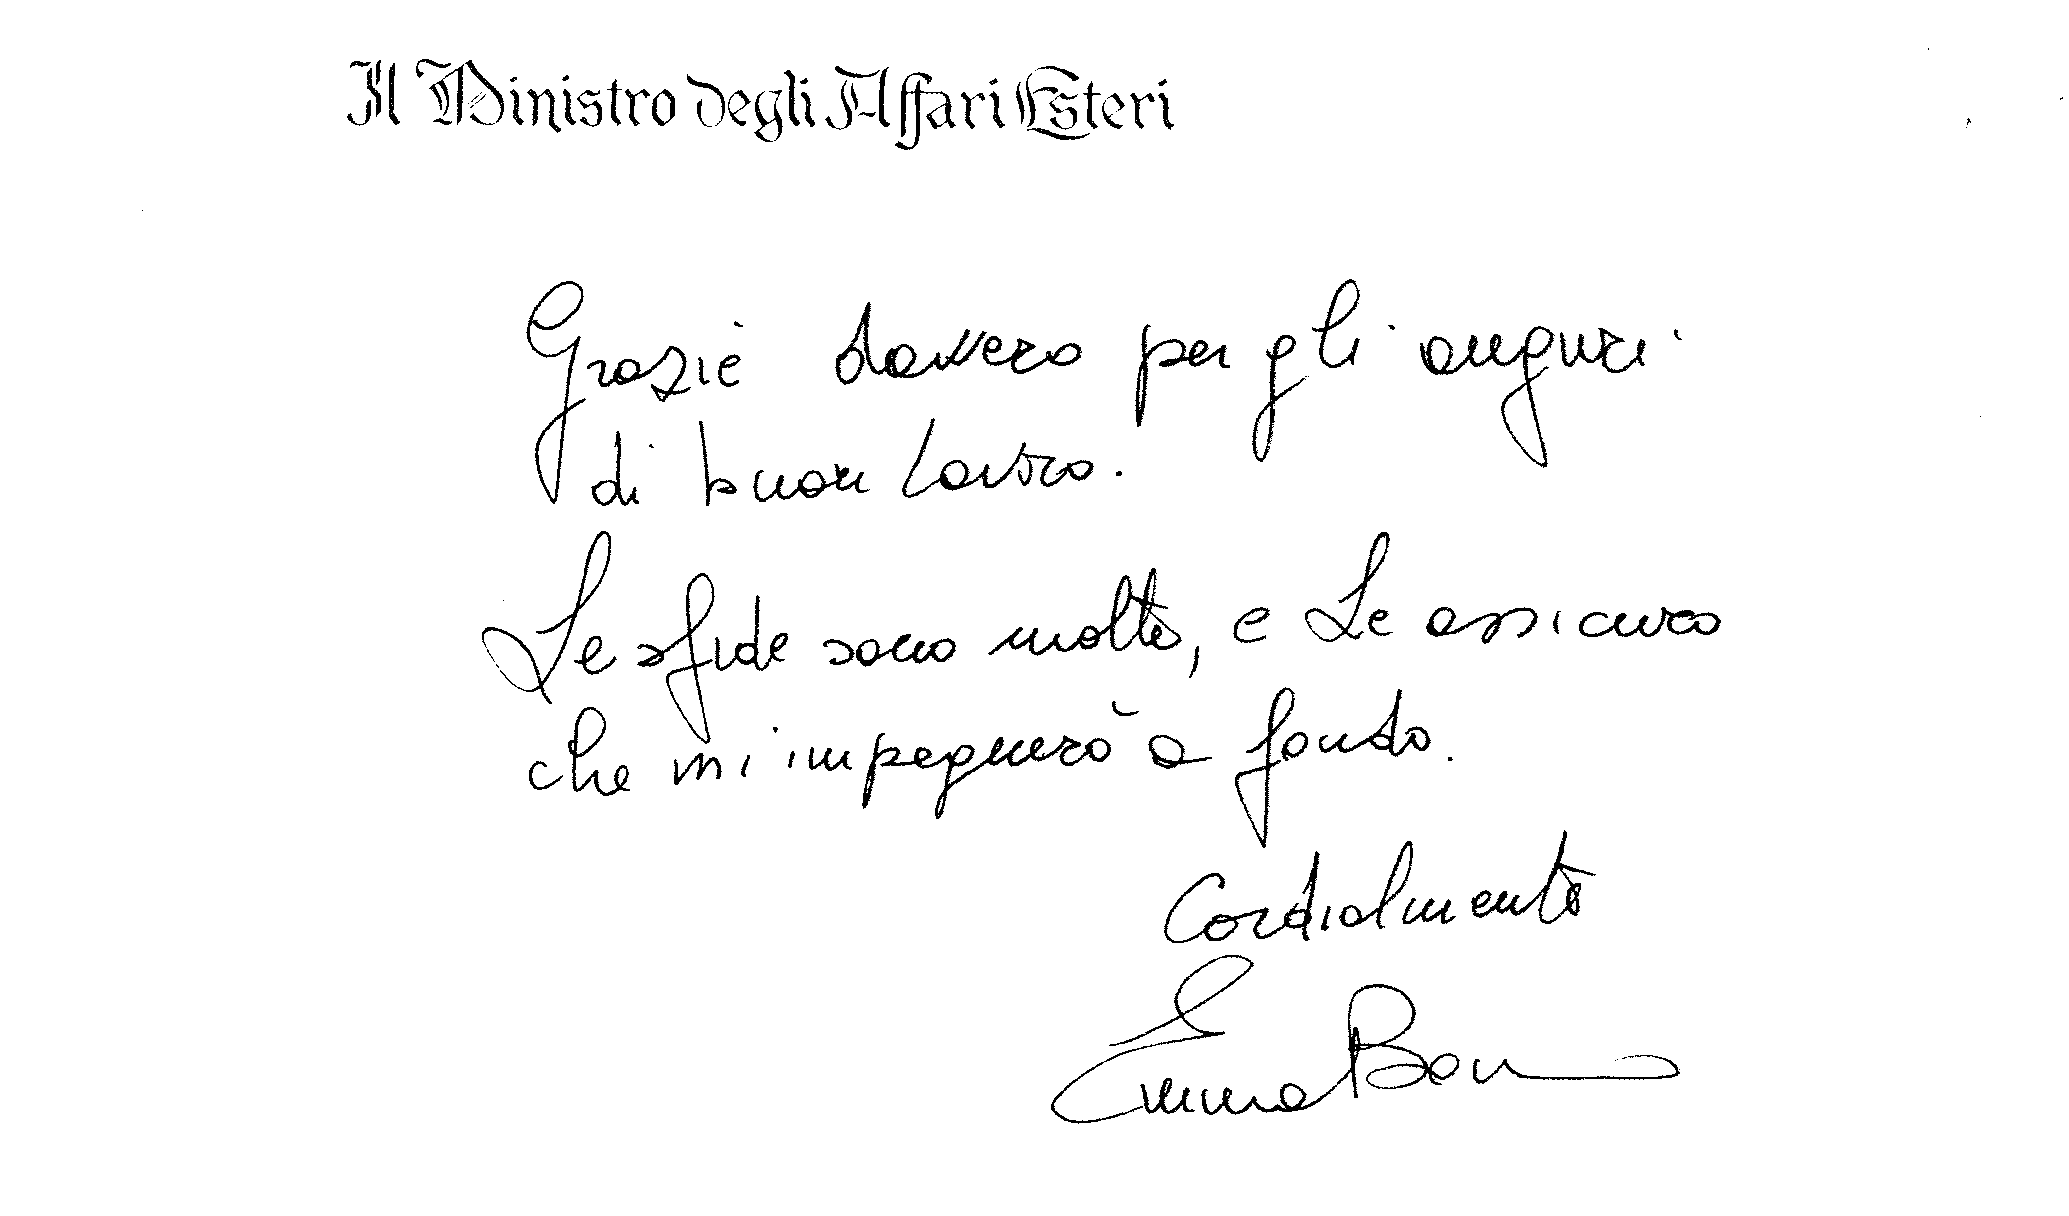 Il Ministro degli Affari Esteri
Grazie davvero per gli auguri
di buon lavoro.
Le sfide sono molte, e Le assicuro
che mi impegnerò a fondo.
Cordialmente
Emma Bon